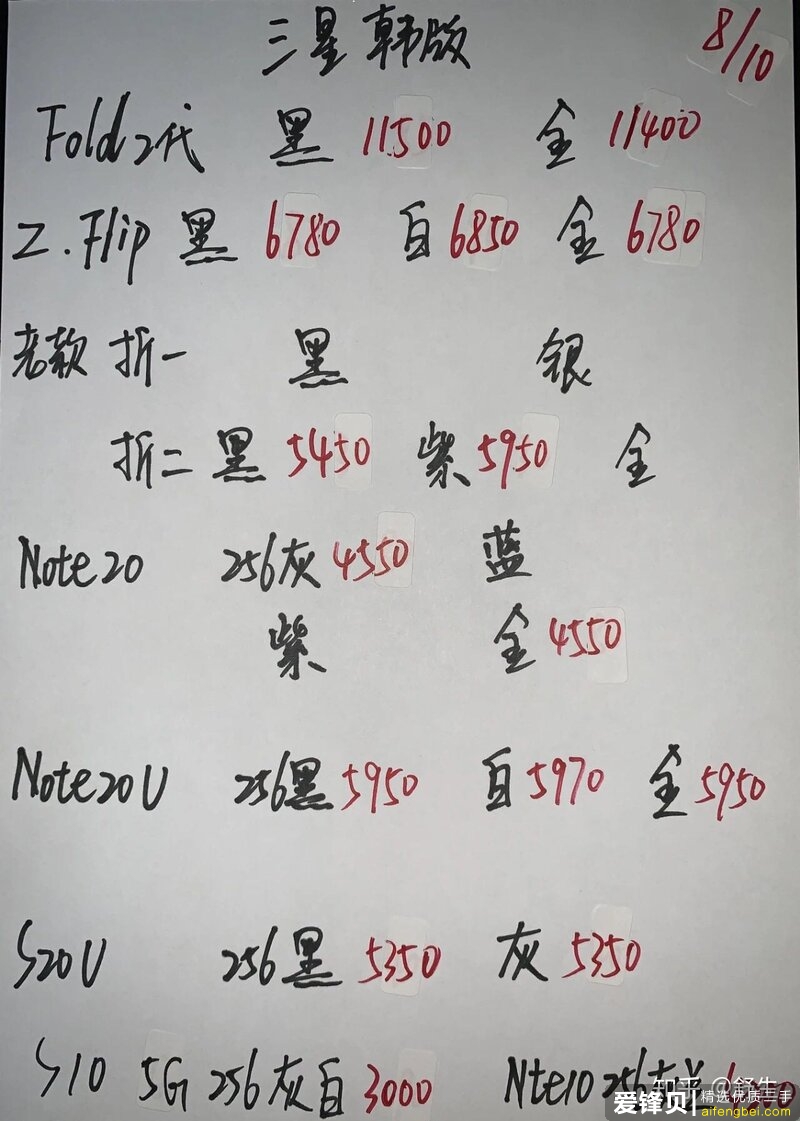 三星韩版 8/10
Fold 2代 黑 11500 金 11400
Z.Flip 黑 6780 白 6850 金 6780
老款 折一 黑 银
折二 黑 5450 紫 5950 金
Note20 256灰 4550 蓝
紫 金 4550
Note20U 256黑 5950 白 5970 金 5950
S20U 256黑 5350 灰 5350
S10 5G 256灰白 3000 Nte10 256
知乎 @舒生
爱锋贝 精选优质二手
aifengbei.com